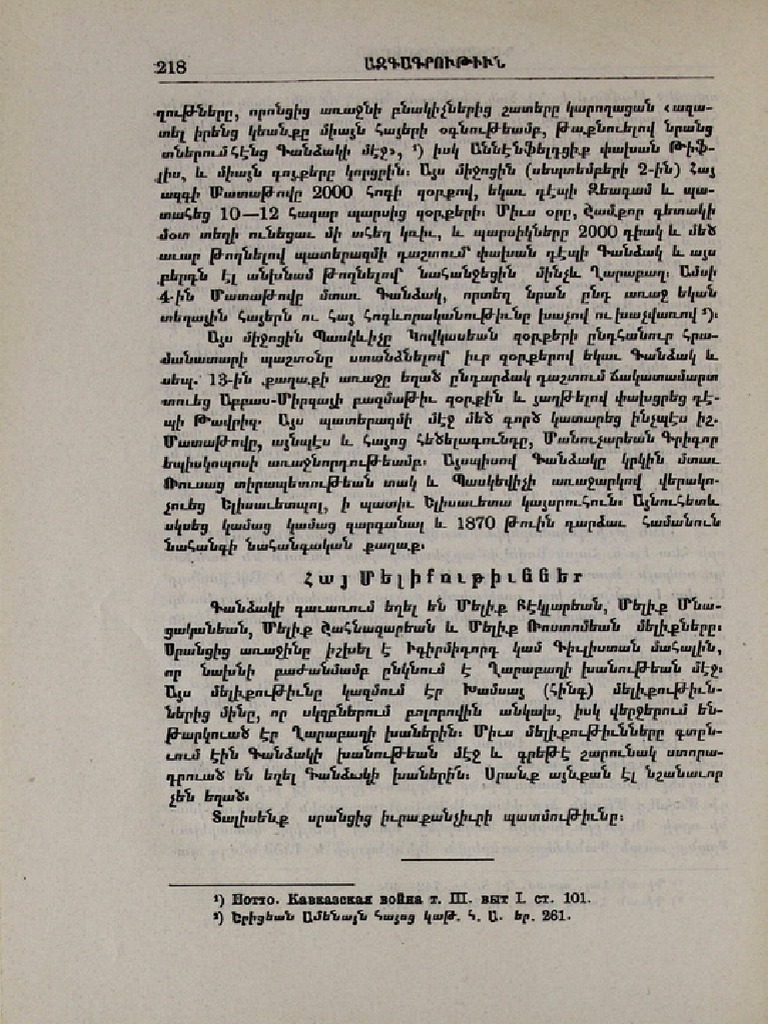 218
ԱԶԳԱԳՐՈՒԹԻՒՆ
ղութները, որոնցից առաջնի բնակիչներից շատերը կարողացան ազա-
տել իրենց կեանքը միայն հայերի օգնութեամբ, թաքնուելով նրանց
տներում հէնց Գանձակի մէջ», ¹) իսկ Աննէնֆելդցիք փախան Թիֆ-
լիս, և միայն գոյքերը կորցրին։ Այս միջոցին (սեպտեմբերի 2-ին) Հայ
ազգի Մատաթովը 2000 հոգի զօրքով, եկաւ դէպի Զեագամ և պա-
տահեց 10—12 հազար պարսից զօրքերի։ Միւս օրը, Շամքոր գետակի
մօտ տեղի ունեցաւ մի ահեղ կռիւ, և պարսիկները 2000 դիակ և մեծ
աւար թողնելով պատերազմի դաշտում՝ փախան դէպի Գանձակ և այս
բերդն էլ անխնամ թողնելով՝ նահանջեցին մինչև Ղարաբաղ։ Ամսի
4-ին Մատաթովը մտաւ Գանձակ, որտեղ նրան ընդ առաջ եկան
տեղային հայերն ու հայ հոգևորականութիւնը խաչով ու խաչվառով ²)։
Այս միջոցին Պասկևիչը Կովկասեան զօրքերի ընդհանուր հրա-
մանատարի պաշտօնը ստանձնելով՝ իւր զօրքերով եկաւ Գանձակ և
սեպ. 13-ին քաղաքի առաջը եղած ընդարձակ դաշտում ճակատամարտ
տուեց Աբբաս-Միրզայի բազմաթիւ զօրքին և յաղթելով փախցրեց դէ-
պի Թավրիզ. Այս պատերազմի մէջ մեծ գործ կատարեց ինչպէս իշ.
Մատաթովը, այնպէս և հայոց հեծելագունդը, Մանուչարեան Գրիգոր
եպիսկոպոսի առաջնորդութեամբ. Այսպիսով Գանձակը կրկին մտաւ
Ռուսաց տիրապետութեան տակ և Պասկեվիչի առաջարկով վերակո-
չուեց Ելիսաւետպոլ, ի պատիւ Ելիսաւետա կայսրուհուն։ Այնուհետև
սկսեց կամաց կամաց զարգանալ և 1870 թուին դարձաւ համանուն
նահանգի նահանգական քաղաք.
Հայ Մելիքութիւններ
Գանձակի գաւառում եղել են Մելիք Բէկլարեան, Մելիք Մնա-
ցականեան, Մելիք Շահնազարեան և Մելիք Ռոստոմեան մելիքները։
Սրանցից առաջինը իշխել է Իգիրմիդորդ կամ Գիւլիստան մահալին,
որ նախնի բաժանմամբ ընկնում է Ղարաբաղի խանութեան մէջ։
Այս մելիքութիւնը կազմում էր Խամսայ (հինգ) մելիքութիւն-
ներից մինը, որ սկզբներում բոլորովին անկախ, իսկ վերջերում են-
թարկուած էր Ղարաբաղի խաներին։ Միւս մելիքութիւնները գտըն-
ւում էին Գանձակի խանութեան մէջ և գրեթէ շարունակ ստորա-
դրուած են եղել Գանձակի խաներին։ Սրանք այնքան էլ նշանաւոր
չեն եղած.
Տալիսենք սրանցից իւրաքանչիւրի պատմութիւնը։
¹) Потто. Кавказская война т. III. выт I. ст. 101.
²) Երիցեան Ամենայն Հայոց կաթ. հ. Ա. եր. 261.